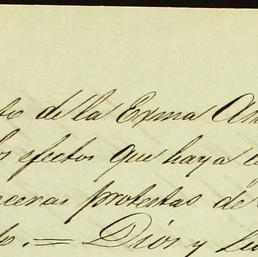 to de la Exma Au
los efectos que haya l
ceras protestas de
to. = Dios y Li